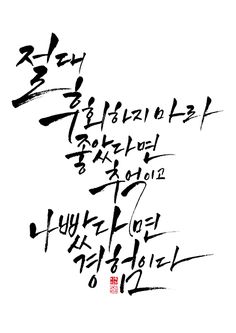 절대
후회하지마라
좋았다면
추억이고
나빴다면
경험이다